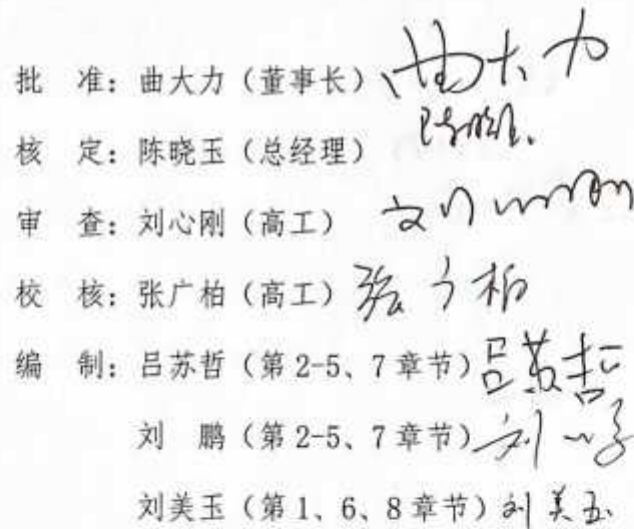 批 准：曲大力（董事长）曲大力
核 定：陈晓玉（总经理）
审 查：刘心刚（高工）刘心刚
校 核：张广柏（高工）张广柏
编 制：吕苏哲（第 2-5、7 章节）吕苏哲
刘 鹏（第 2-5、7 章节）刘
刘美玉（第 1、6、8 章节）刘美玉